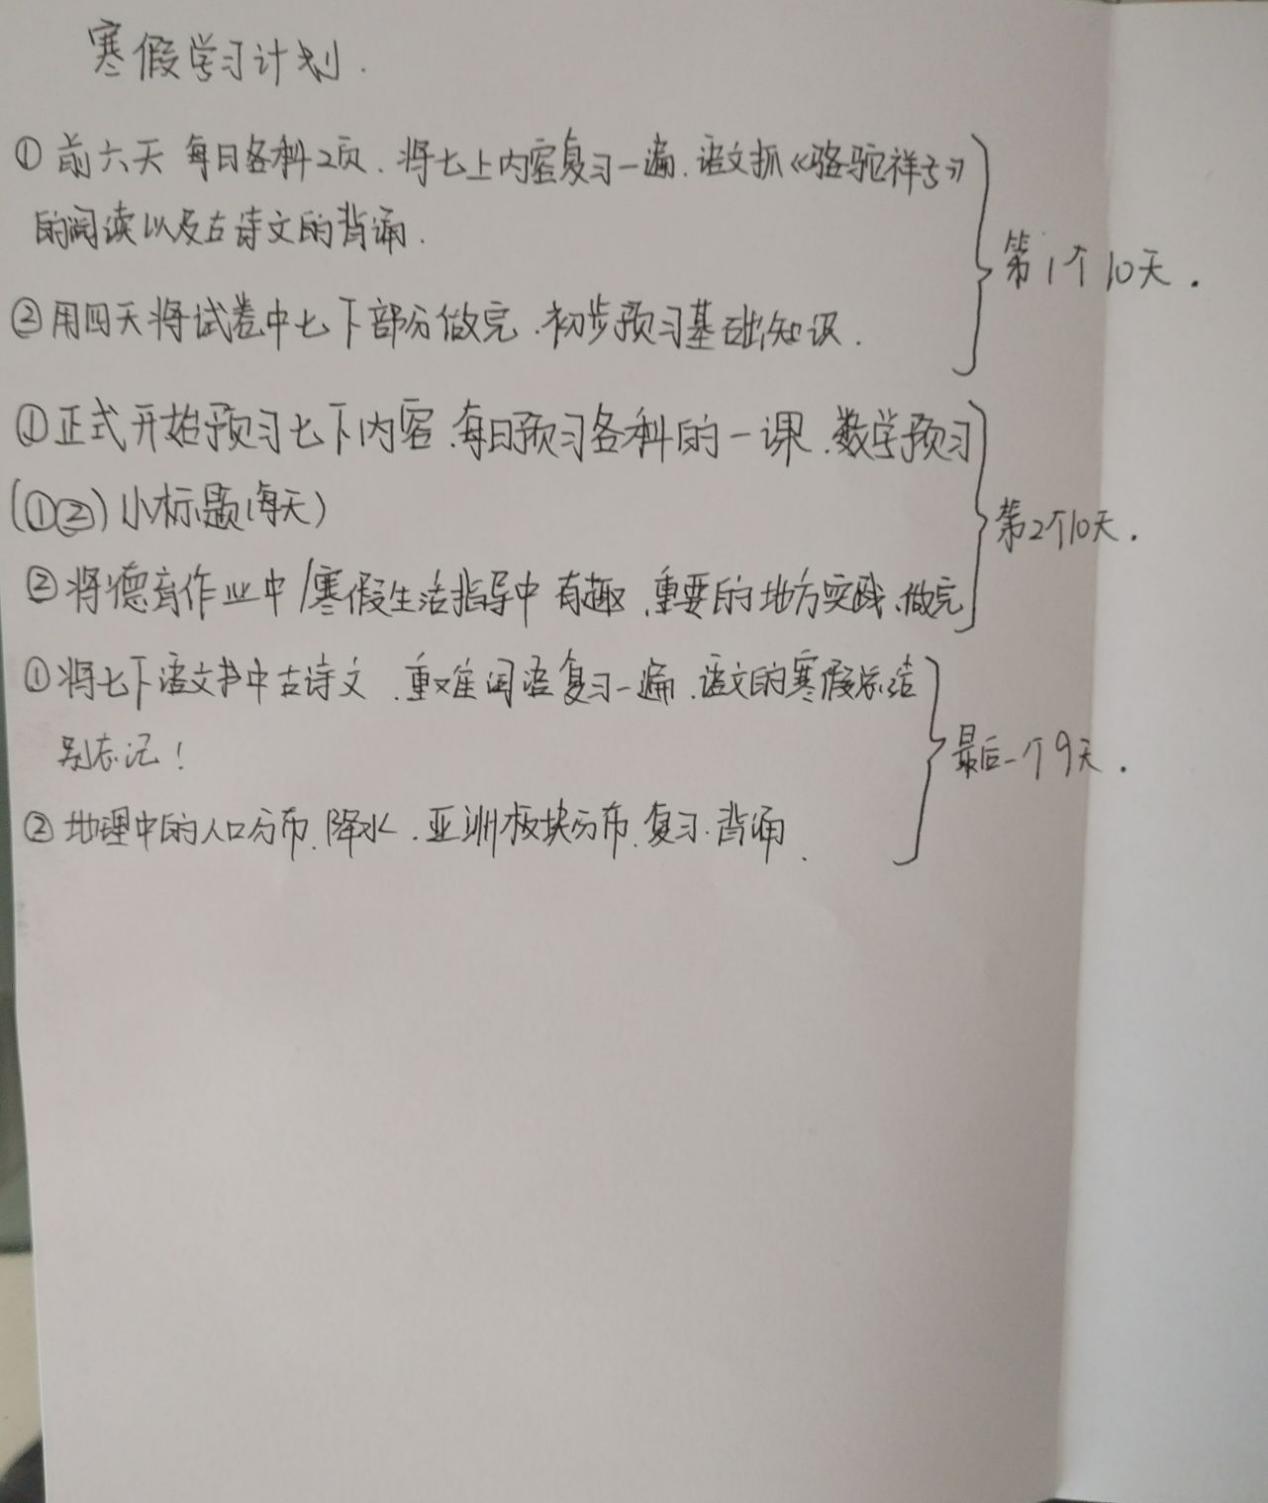 寒假学习计划.
①前六天 每日各科2页.将七上内容复习一遍.语文抓《骆驼祥子》
的阅读以及古诗文的背诵.
第1个10天.
②用四天将试卷中七下部分做完.初步预习基础知识.
①正式开始预习七下内容.每日预习各科的一课.数学预习
(①②)小标题(每天)
第2个10天.
②将德育作业中/寒假生活指导中有趣.重要的地方实践、做完
①将七下语文书中古诗文.重难词语复习一遍.语文的寒假总结
别忘记!
最后一个9天.
②地理中的人口分布.降水.亚洲板块分布.复习.背诵.